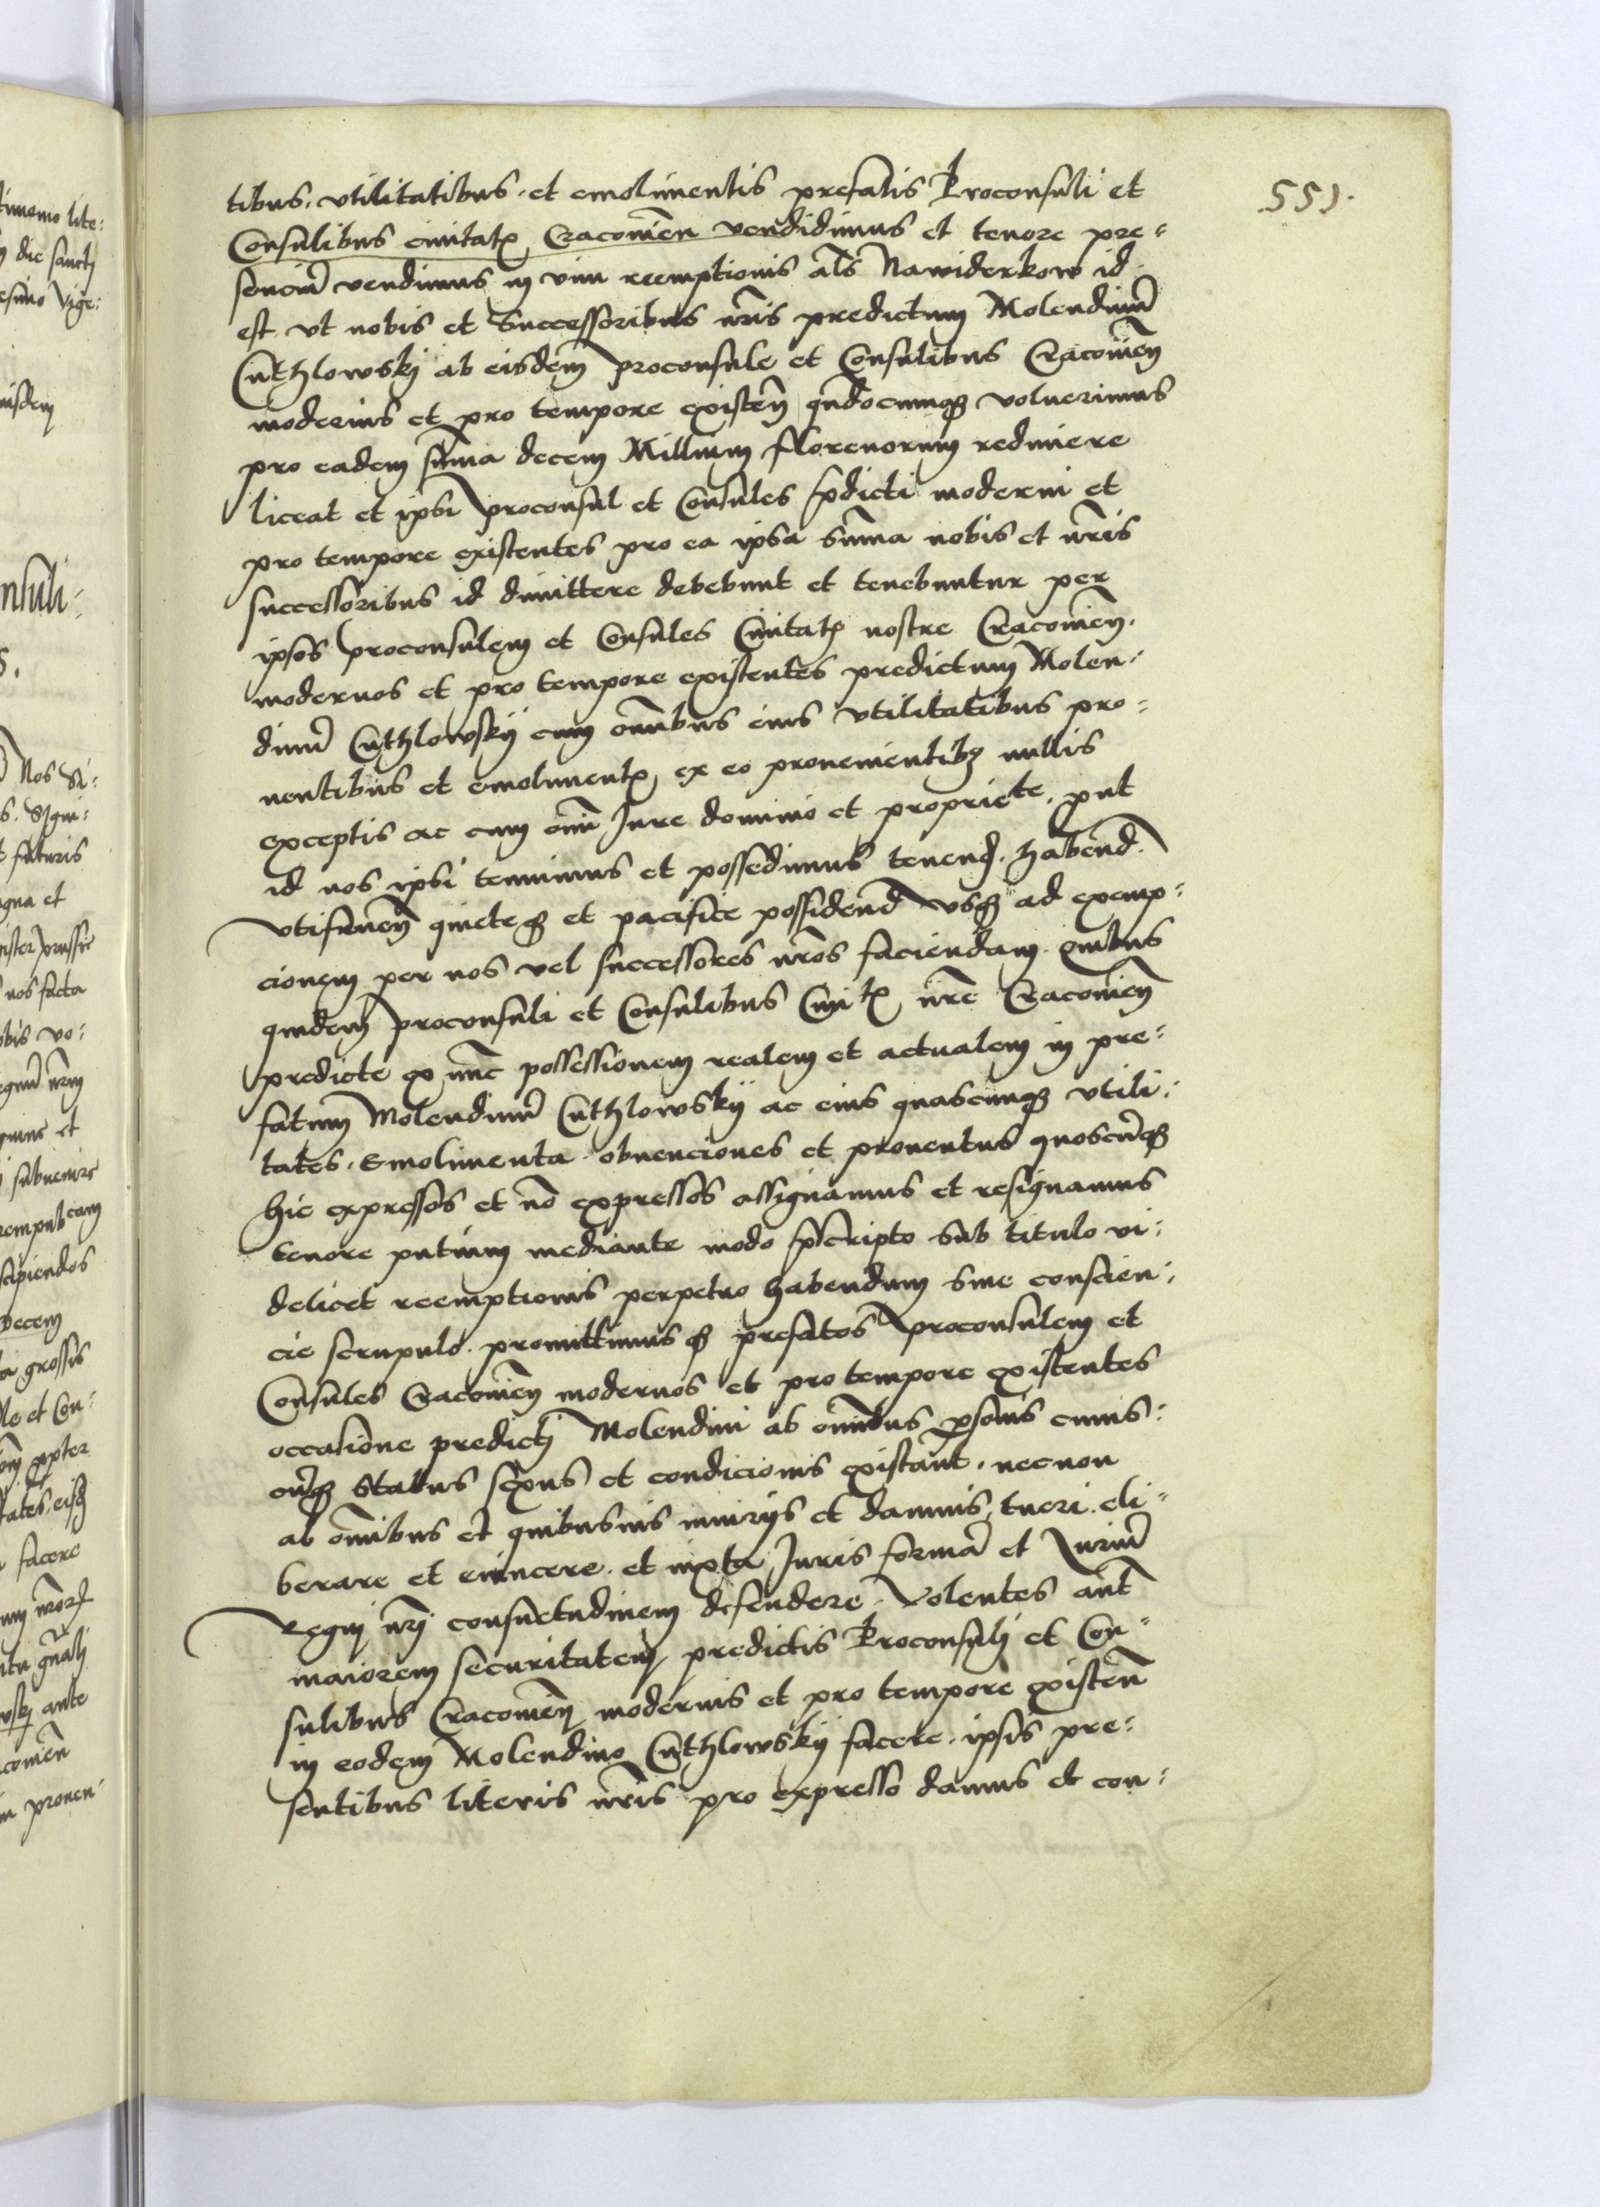 551.
tibus, vtilitatibus, et emolimentis prefatis Proconsuli et
Consulibus ciuitatꝭ Cracouien̄ vendidimus et tenore pre-
senciū vendimus in vim reemptionis al̄s Nawiderkow id
est vt nobis et Successoribus nr̄is predictum Molendinū
Cuthlowskÿ ab eisdem proconsule et Consulibus Cracouien̄
modernis et pro tempore existen̄ qn̄docunqȝ voluerimus
pro eadem sum̄a decem Millium florenorum redimere
liceat et ipsi proconsul et Consules p̄dicti moderni et
pro tempore existentes pro ea ipsa sum̄a nobis et nr̄is
successoribus id dimittere debebunt et tenebuntur per
ipsos proconsulem et Consules Ciuitatꝭ nostre Cracouien̄.
modernos et pro tempore existentes predictum Molen-
dinū Cuthlowskÿ cum om̄ibus eius vtilitatibus pro-
uentibus et emolimentꝭ ex eo prouenientibȝ nullis
exceptis ac cum om̄i Jure dominio et propriete, put
id nos ipsi tenuimus et possedimus tenend̄. habend̄.
vtifruen̄ quieteqȝ et pacifice possidend̄ vsqȝ ad exemp-
cionem per nos vel successores nr̄os faciendam. quibus
quidem proconsuli et Consulibus Ciuitꝭ nr̄e Cracouien̄
predicte ex nūc possessionem realem et actualem in pre-
fatum Molendinū Cuthlowskÿ ac eius quascunqȝ vtili-
tates. Emolimenta. obuenciones et prouentus quoscūqȝ
hic expressos et nō expressos assignamus et resignamus
tenore pn̄tium mediante modo p̄scripto sub titulo vi-
delicet reemptionis perpetuo habendum sine conscien-
cie scrupulo. promittimusqȝ prefatos proconsulem et
Consules Cracouien̄ modernos et pro tempore existentes
occasione predicti Molendini ab om̄ibus personis cuius-
cūqȝ status sexus et condicionis existant, necnon
ab om̄ibus et quibusuis iniurÿs et damnis, tueri. eli-
berare et euincere. et iuxta Juris formā et Jurium̄
regni nr̄i consuetudinem defendere. Volentes aūt
maiorem securitatem predictis Proconsuli et Con-
sulibus Cracouien̄ modernis et pro tempore existen̄
in eodem Molendino Cuthlowskÿ facere. ipsis pre-
sentibus literis nr̄is pro expresso damus et con-